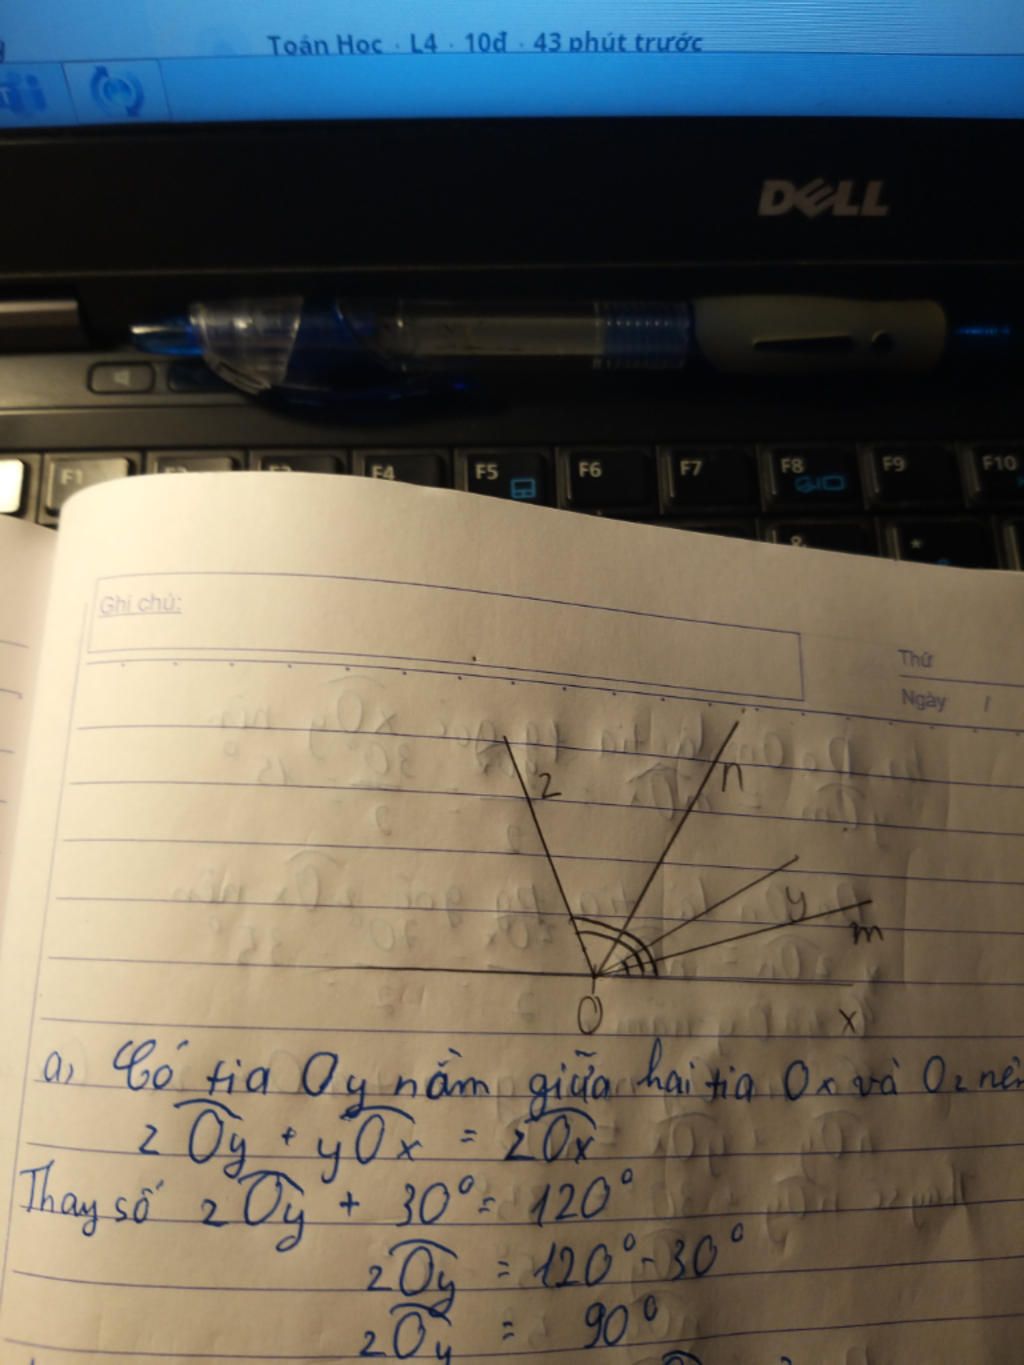 Toán Học · L4 · 10đ · 43 phút trước
DELL
F1 F2 F3 F4 F5 F6 F7 F8 F9 F10
& *
Ghi chú:
Thứ
Ngày /
z n
y
m
O x
a, Có tia Oy nằm giữa hai tia Ox và Oz nên
zOy + yOx = zOx
Thay số zOy + 30° = 120°
zOy = 120° - 30°
zOy = 90°